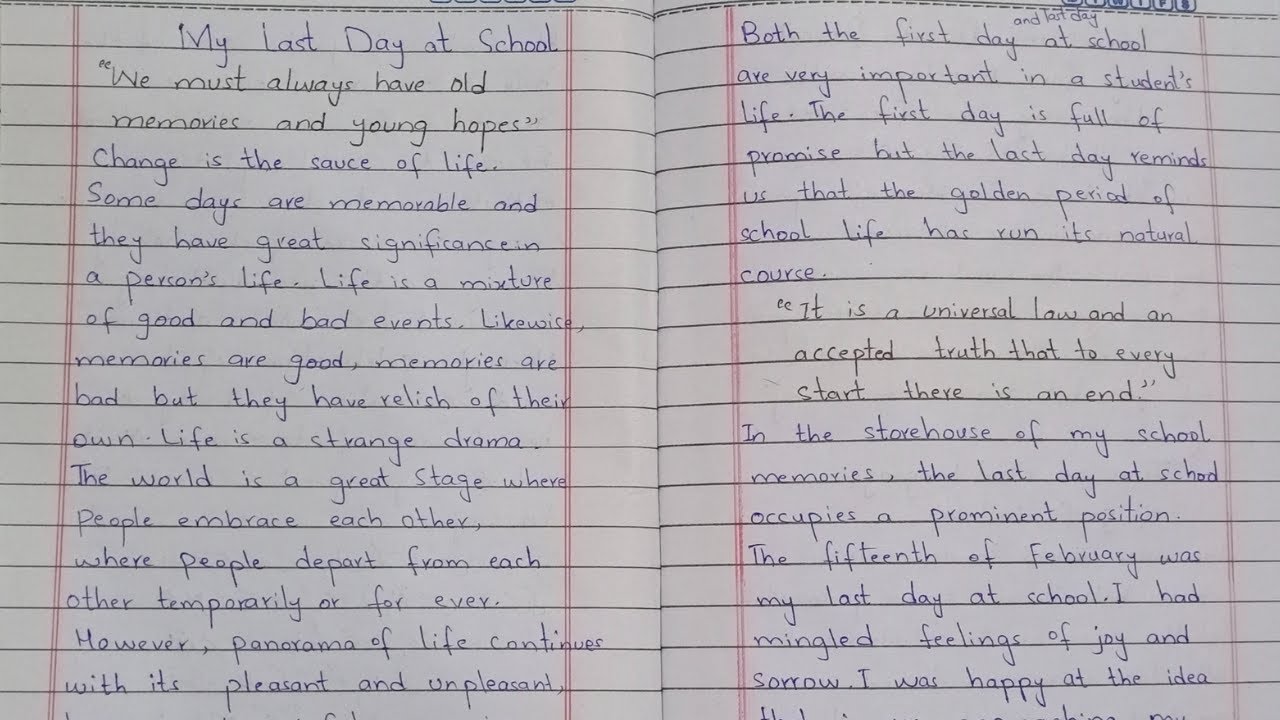 My Last Day at School
"We must always have old
memories and young hopes"
Change is the sauce of life.
Some days are memorable and
they have great significance in
a person's life. Life is a mixture
of good and bad events. Likewise,
memories are good, memories are
bad but they have relish of their
own. Life is a strange drama.
The world is a great Stage where
People embrace each other,
where people depart from each
other temporarily or for ever.
However, panorama of life continues
with its pleasant and unpleasant,
and last day
Both the first day at school
are very important in a student's
life. The first day is full of
promise but the last day reminds
us that the golden period of
school life has run its natural
course.
"It is a universal law and an
accepted truth that to every
start there is an end."
In the storehouse of my school
memories, the last day at school
occupies a prominent position.
The fifteenth of February was
my last day at school. I had
mingled feelings of joy and
sorrow. I was happy at the idea